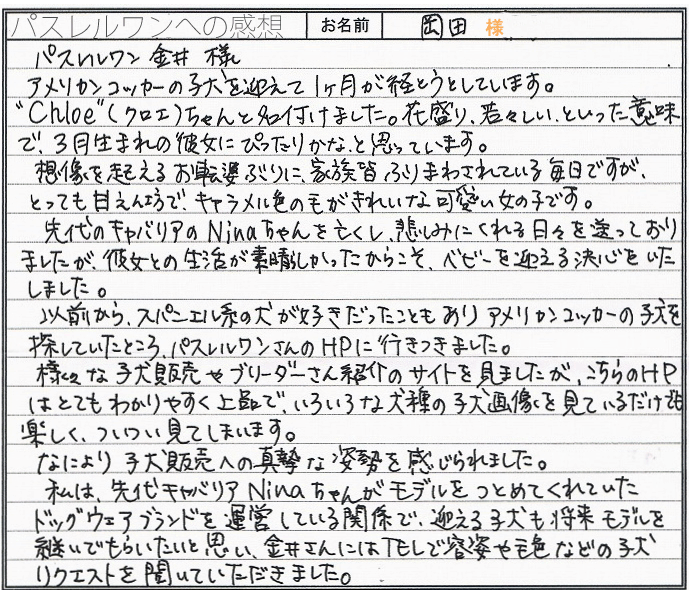 パスレルワンへの感想 お名前 岡田 様
パスレルワン 金井 様
アメリカンコッカーの子犬を迎えて1ヶ月が経とうとしています。
"Chloe"(クロエ)ちゃんと名付けました。花盛り、若々しい、といった意味
で、3月生まれの彼女にぴったりかな、と思っています。
想像を超えるお転婆ぶりに、家族皆ふりまわされている毎日ですが、
とっても甘えん坊で、キャラメル色の毛がきれいな可愛い女の子です。
先代のキャバリアのNinaちゃんを亡くし、悲しみにくれる日々を送っており
ましたが、彼女との生活が素晴しかったからこそ、ベビーを迎える決心をいた
しました。
以前から、スパニエル系の犬が好きだったこともあり アメリカンコッカーの子犬を
探していたところ、パスレルワンさんのHPに行きつきました。
様々な子犬販売やブリーダーさん紹介のサイトを見ましたが、こちらのHP
はとてもわかりやすく上品で、いろいろな犬種の子犬画像を見ているだけでも
楽しく、ついつい見てしまいます。
なにより 子犬販売への真摯な姿勢を感じられました。
私は、先代キャバリアNinaちゃんがモデルをつとめてくれていた
ドッグウェアブランドを運営している関係で、迎える子犬も将来モデルを
継いでもらいたいと思い、金井さんにはTELで容姿や毛色などの子犬
リクエストを聞いていただきました。